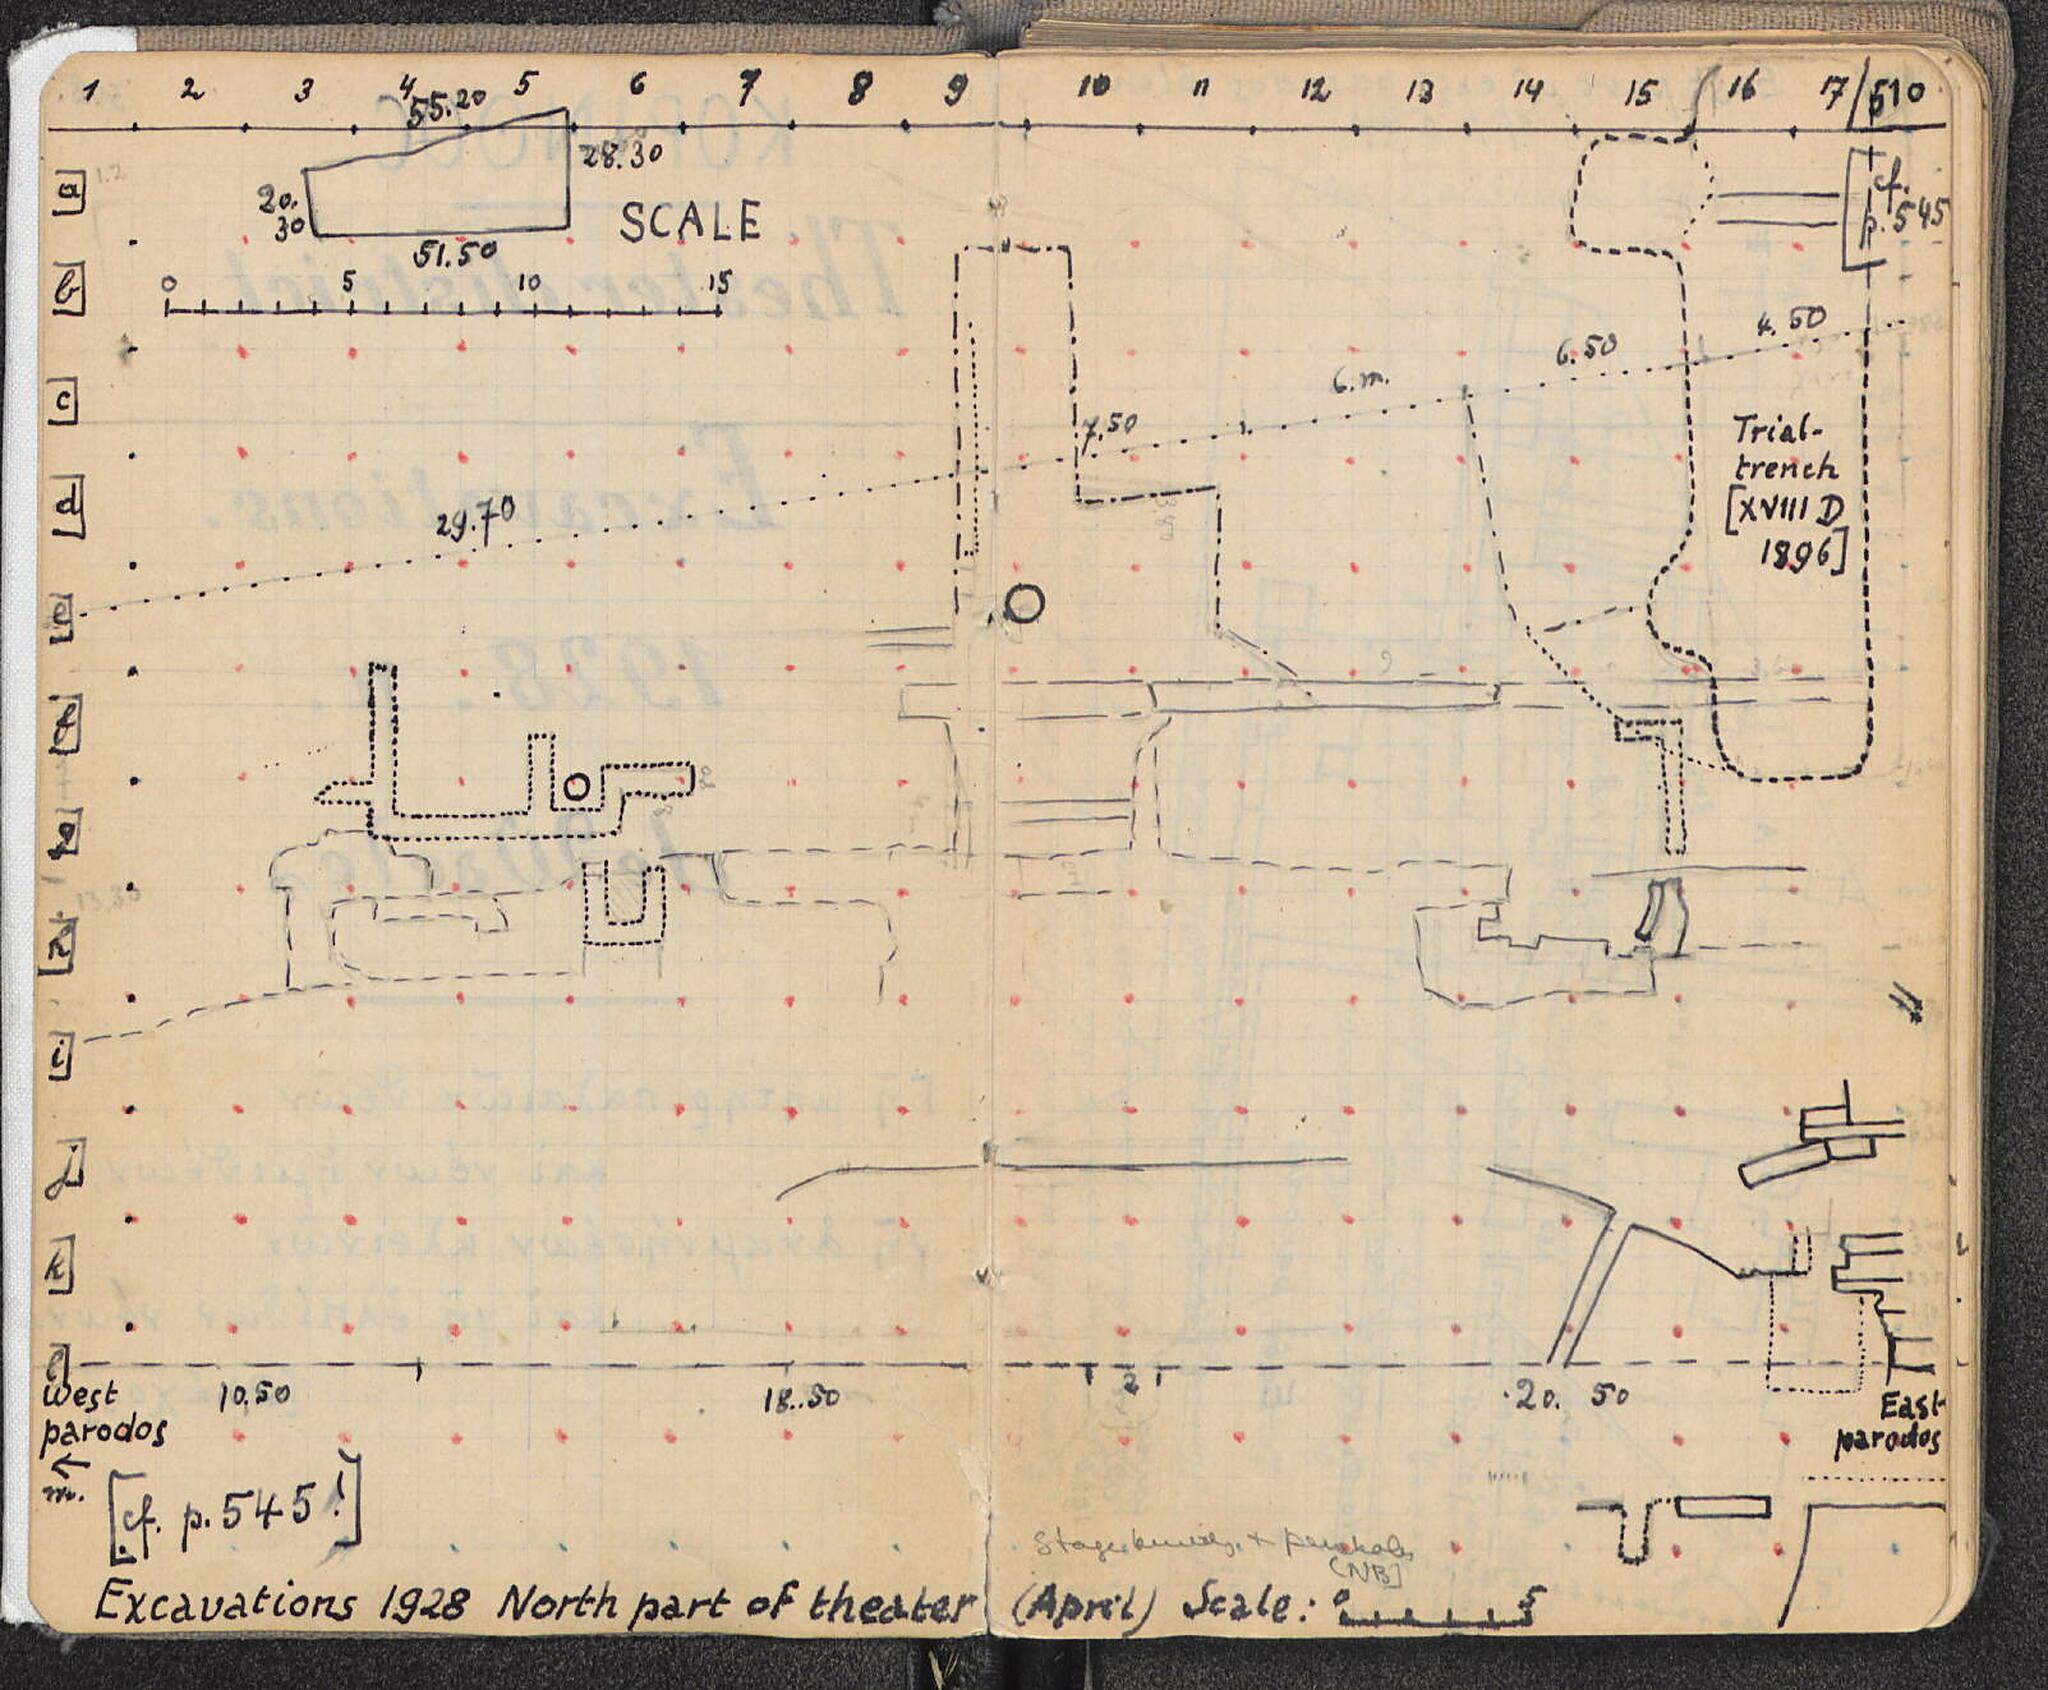 1 2 3 4 5 6 7 8 9 10 11 12 13 14 15 16 17 510
55.20
28.30
20.
30
51.50
SCALE
0 5 10 15
a
b
c
d
e
f
g
h
i
j
k
l
[cf.
p. 545
4.50
6.50
6.m.
7.50
29.70
Trial-
trench
[XVIII D
1896]
West
parodos
m.
10.50
18..50
2
20. 50
East
parodos
[cf. p. 545!]
(NB]
Excavations 1928 North part of theater (April) Scale: 0 5